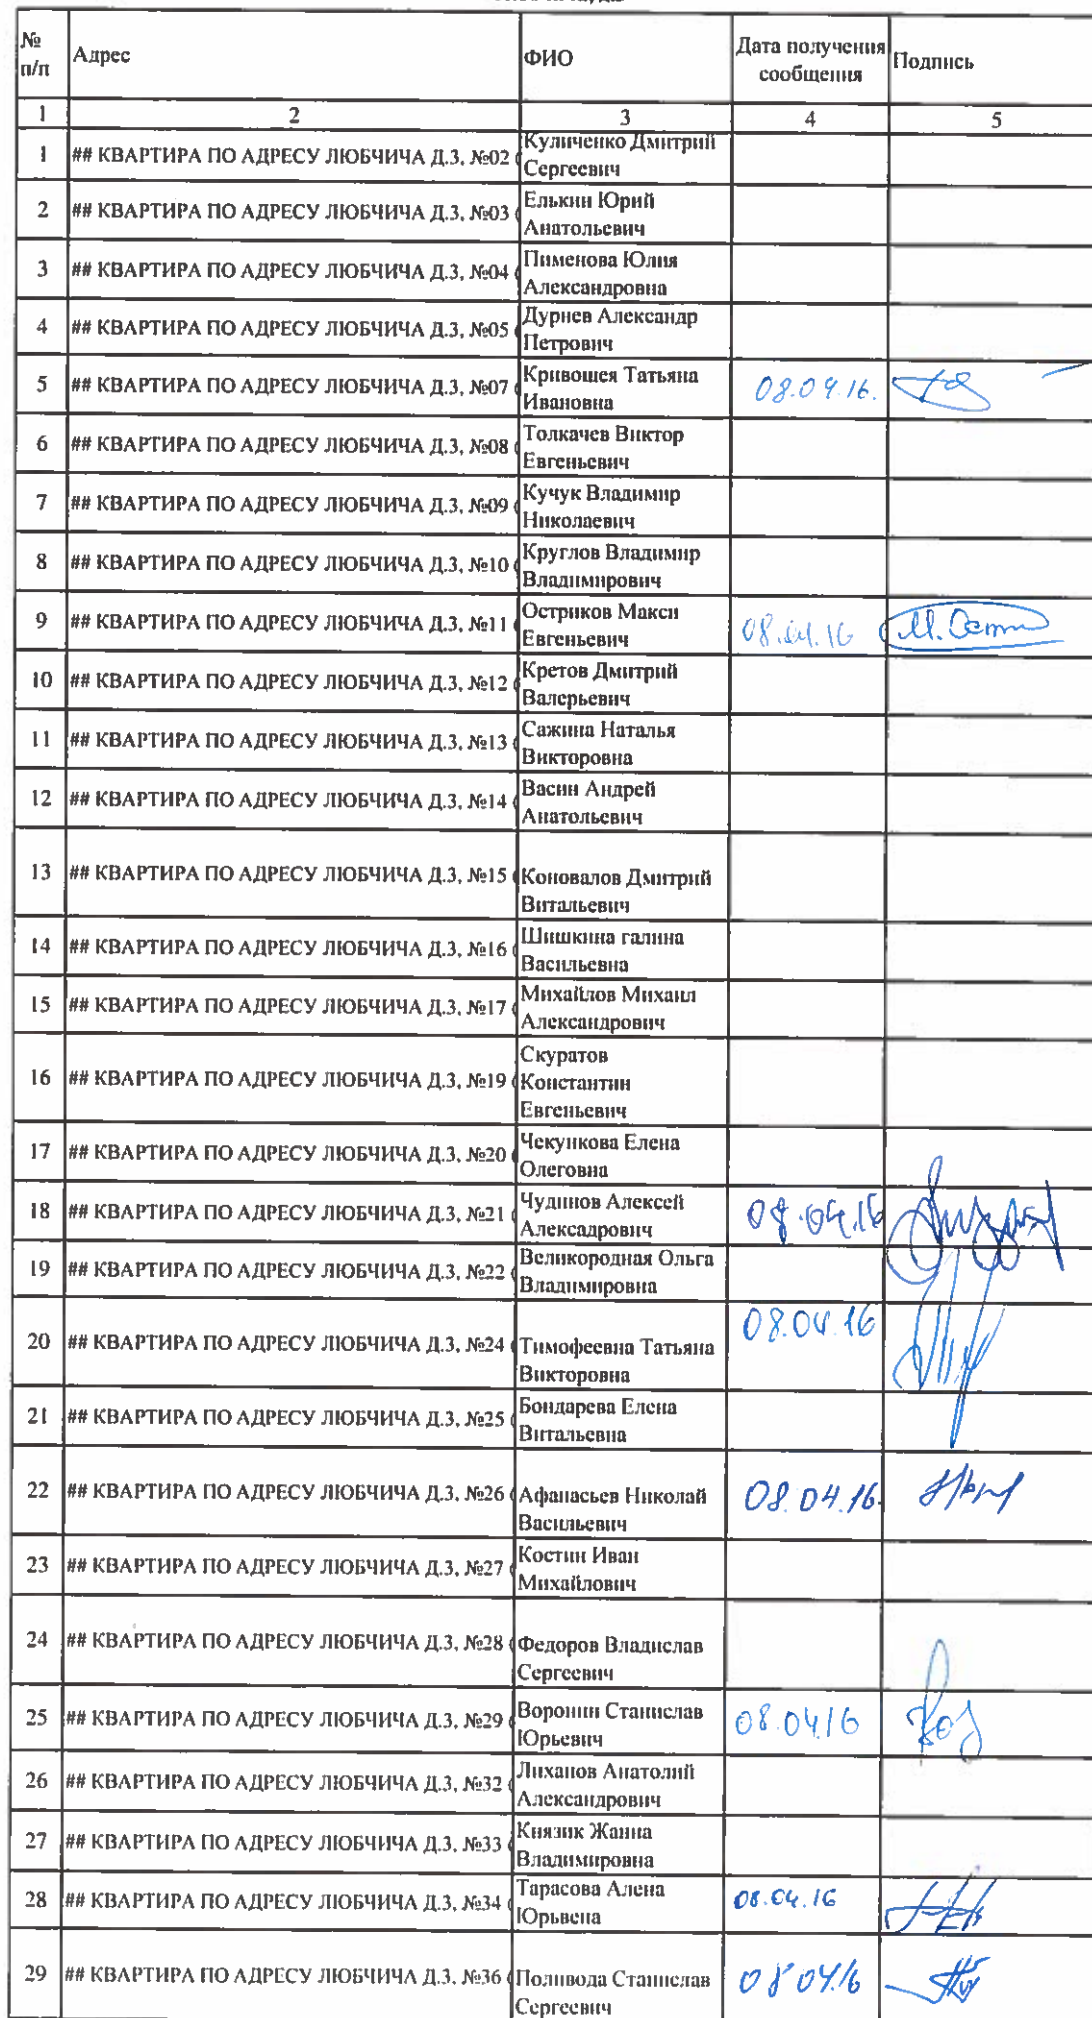 № п/п Адрес ФИО Дата получения сообщения Подпись
1 2 3 4 5
1 ## КВАРТИРА ПО АДРЕСУ ЛЮБЧИЧА Д.3, №02 ( Куличенко Дмитрий Сергеевич
2 ## КВАРТИРА ПО АДРЕСУ ЛЮБЧИЧА Д.3, №03 ( Елькин Юрий Анатольевич
3 ## КВАРТИРА ПО АДРЕСУ ЛЮБЧИЧА Д.3, №04 ( Пименова Юлия Александровна
4 ## КВАРТИРА ПО АДРЕСУ ЛЮБЧИЧА Д.3, №05 ( Дурнев Александр Петрович
5 ## КВАРТИРА ПО АДРЕСУ ЛЮБЧИЧА Д.3, №07 ( Кривошея Татьяна Ивановна 08.04.16.
6 ## КВАРТИРА ПО АДРЕСУ ЛЮБЧИЧА Д.3, №08 ( Толкачев Виктор Евгеньевич
7 ## КВАРТИРА ПО АДРЕСУ ЛЮБЧИЧА Д.3, №09 ( Кучук Владимир Николаевич
8 ## КВАРТИРА ПО АДРЕСУ ЛЮБЧИЧА Д.3, №10 ( Круглов Владимир Владимирович
9 ## КВАРТИРА ПО АДРЕСУ ЛЮБЧИЧА Д.3, №11 ( Остриков Макси Евгеньевич 08.04.16
10 ## КВАРТИРА ПО АДРЕСУ ЛЮБЧИЧА Д.3, №12 ( Кретов Дмитрий Валерьевич
11 ## КВАРТИРА ПО АДРЕСУ ЛЮБЧИЧА Д.3, №13 ( Сажина Наталья Викторовна
12 ## КВАРТИРА ПО АДРЕСУ ЛЮБЧИЧА Д.3, №14 ( Васин Андрей Анатольевич
13 ## КВАРТИРА ПО АДРЕСУ ЛЮБЧИЧА Д.3, №15 ( Коновалов Дмитрий Витальевич
14 ## КВАРТИРА ПО АДРЕСУ ЛЮБЧИЧА Д.3, №16 ( Шишкина галина Васильевна
15 ## КВАРТИРА ПО АДРЕСУ ЛЮБЧИЧА Д.3, №17 ( Михайлов Михаил Александрович
16 ## КВАРТИРА ПО АДРЕСУ ЛЮБЧИЧА Д.3, №19 ( Скуратов Константин Евгеньевич
17 ## КВАРТИРА ПО АДРЕСУ ЛЮБЧИЧА Д.3, №20 ( Чекункова Елена Олеговна
18 ## КВАРТИРА ПО АДРЕСУ ЛЮБЧИЧА Д.3, №21 ( Чудинов Алексей Алексадрович 08.04.16
19 ## КВАРТИРА ПО АДРЕСУ ЛЮБЧИЧА Д.3, №22 ( Великородная Ольга Владимировна
20 ## КВАРТИРА ПО АДРЕСУ ЛЮБЧИЧА Д.3, №24 ( Тимофеевна Татьяна Викторовна 08.04.16
21 ## КВАРТИРА ПО АДРЕСУ ЛЮБЧИЧА Д.3, №25 ( Бондарева Елена Витальевна
22 ## КВАРТИРА ПО АДРЕСУ ЛЮБЧИЧА Д.3, №26 ( Афанасьев Николай Васильевич 08.04.16.
23 ## КВАРТИРА ПО АДРЕСУ ЛЮБЧИЧА Д.3, №27 ( Костин Иван Михайлович
24 ## КВАРТИРА ПО АДРЕСУ ЛЮБЧИЧА Д.3, №28 ( Федоров Владислав Сергеевич
25 ## КВАРТИРА ПО АДРЕСУ ЛЮБЧИЧА Д.3, №29 ( Воронин Станислав Юрьевич 08.04.16
26 ## КВАРТИРА ПО АДРЕСУ ЛЮБЧИЧА Д.3, №32 ( Лиханов Анатолий Александрович
27 ## КВАРТИРА ПО АДРЕСУ ЛЮБЧИЧА Д.3, №33 ( Князик Жанна Владимировна
28 ## КВАРТИРА ПО АДРЕСУ ЛЮБЧИЧА Д.3, №34 ( Тарасова Алена Юрьвена 08.04.16
29 ## КВАРТИРА ПО АДРЕСУ ЛЮБЧИЧА Д.3, №36 ( Поливода Станислав Сергеевич 08 04.16